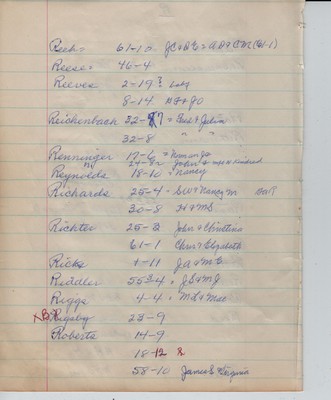 Reek= 61-10 JC & DE = AD & CM (61-1)
Reese= 46-4
Reeves 2-19? baby
8-14 & JO
Reichenbach 32-7 = Gus & Julia
32-8 " "
Renninger 17-6 =
24-22 John &
Reynolds 18-10 Nancy
Richards 25-4 - SW & Nancy M
30-8 H & MS
Richter 25-2 John & Christina
61-1 Chris & Elizabeth
Ricks 1-11 JA & ME
Riddler 55-4 JS & MJ
Riggs 4-4 - ML & Mae
Rigsby 23-9
Roberts 14-9
18-12 &
58-10 James &